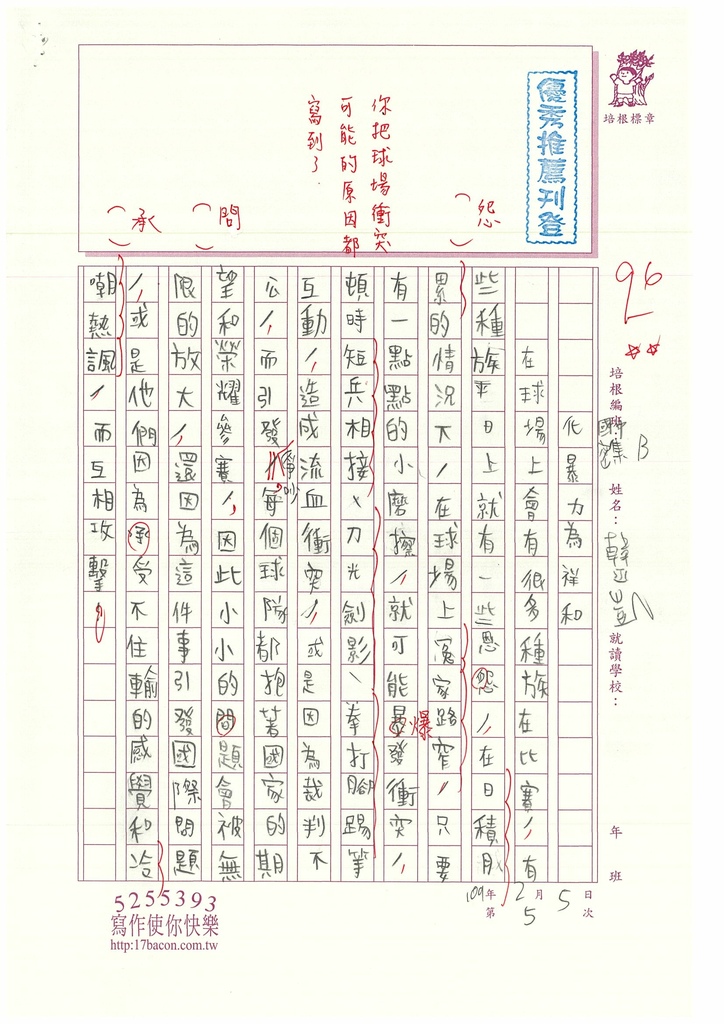 培根標章
優秀推薦刊登
你把球場衝突
可能的原因都
寫到了.
（怨）
（問）
（承）
96
培根編班： B
姓名：
就讀學校：
年 班
化暴力為祥和
在球場上會有很多種族在比賽，有
些種族平日上就有一些恩怨，在日積月
累的情況下，在球場上冤家路窄，只要
有一點點的小磨擦，就可能暴爆發衝突，
頓時短兵相接、刀光劍影、拳打腳踢等
互動，造成流血衝突，或是因為裁判不
公，而引發爭吵，每個球隊都抱著國家的期
望和榮耀參賽，因此小小的問題會被無
限的放大，還因為這件事引發國際問題
，或是他們因為承受不住輸的感覺和冷
嘲熱諷，而互相攻擊。
109年2月5日
第5次
5255393
寫作使你快樂
http:17bacon.com.tw